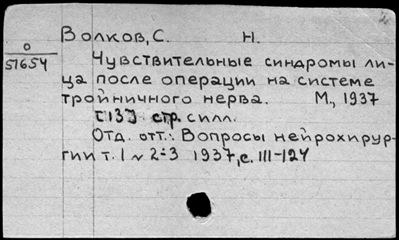 2
Волков, С. Н.
О
51654
Чувствительные синдромы ли-
ца после операции на системе
тройничного нерва. М., 1937
с илл.
Отд. отт.: Вопросы нейрохирур-
гии т. 1 № 2-3 1937, с. 111-124